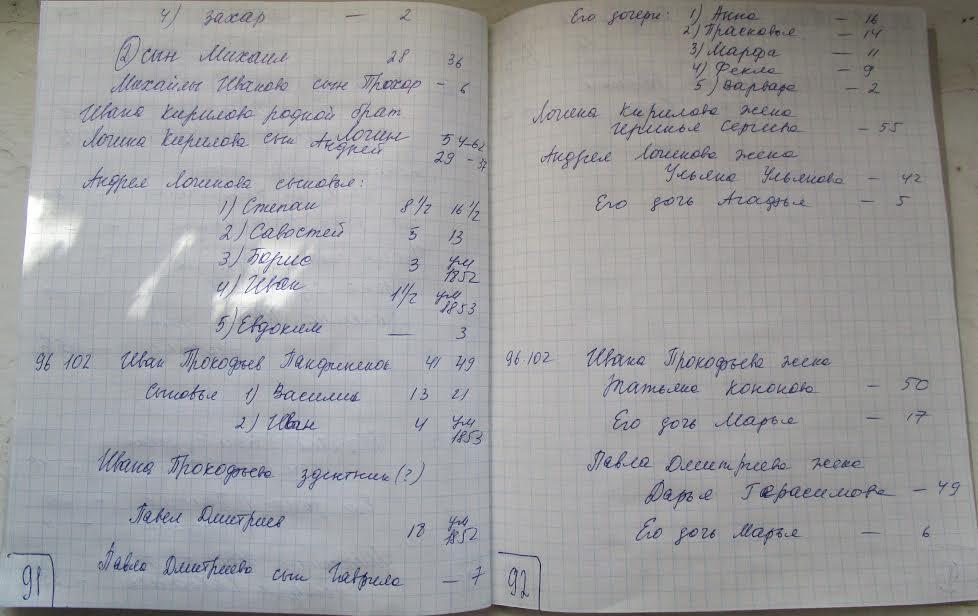 4) Захар — 2
2) сын Михаил 28 36
Михайлы Иванова сын Прохор — 6
Ивана Кирилова родной брат
Логин 54-62
Логина Кирилова сын Андрей 29 - 37
Андрея Логинова сыновья:
1) Степан 8 1/2 16 1/2
2) Савостей 5 13
3) Борис 3 ум 1852
4) Иван 1 1/2 ум 1853
5) Евдоким — 3
96 102 Иван Прокофьев 41 49
Сыновья 1) Василий 13 21
2) Иван 4 ум 1853
Ивана Прокофьева (?)
Павел Дмитриев 18 ум 1852
Павла Дмитриева сын Гаврила — 7
91
Его дочери: 1) Анна — 16
2) Прасковья — 14
3) Марфа — 11
4) Фекла — 9
5) Варвара — 2
Логина Кирилова жена
Сергиева — 55
Андрея Логинова жена
Ульяна Ульянова — 42
Его дочь Агафья — 5
96 102 Ивана Прокофьева жена
Татьяна Кононова — 50
Его дочь Марья — 17
Павла Дмитриева жена
Дарья Герасимова — 49
Его дочь Марья — 6
92